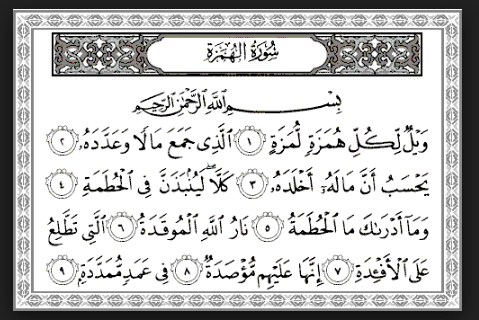 سُورَةُ الهُمَزَة
بِسْمِ اللَّهِ الرَّحْمَٰنِ الرَّحِيمِ
وَيْلٌ لِّكُلِّ هُمَزَةٍ لُّمَزَةٍ ١ الَّذِى جَمَعَ مَالًا وَعَدَّدَهُۥ ٢
يَحْسَبُ أَنَّ مَالَهُۥٓ أَخْلَدَهُۥ ٣ كَلَّا ۖ لَيُنۢبَذَنَّ فِى الْحُطَمَةِ ٤
وَمَآ أَدْرَىٰكَ مَا الْحُطَمَةُ ٥ نَارُ اللَّهِ الْمُوقَدَةُ ٦ الَّتِى تَطَّلِعُ
عَلَى الْأَفْـِٔدَةِ ٧ إِنَّهَا عَلَيْهِم مُّؤْصَدَةٌ ٨ فِى عَمَدٍ مُّمَدَّدَةٍۭ ٩